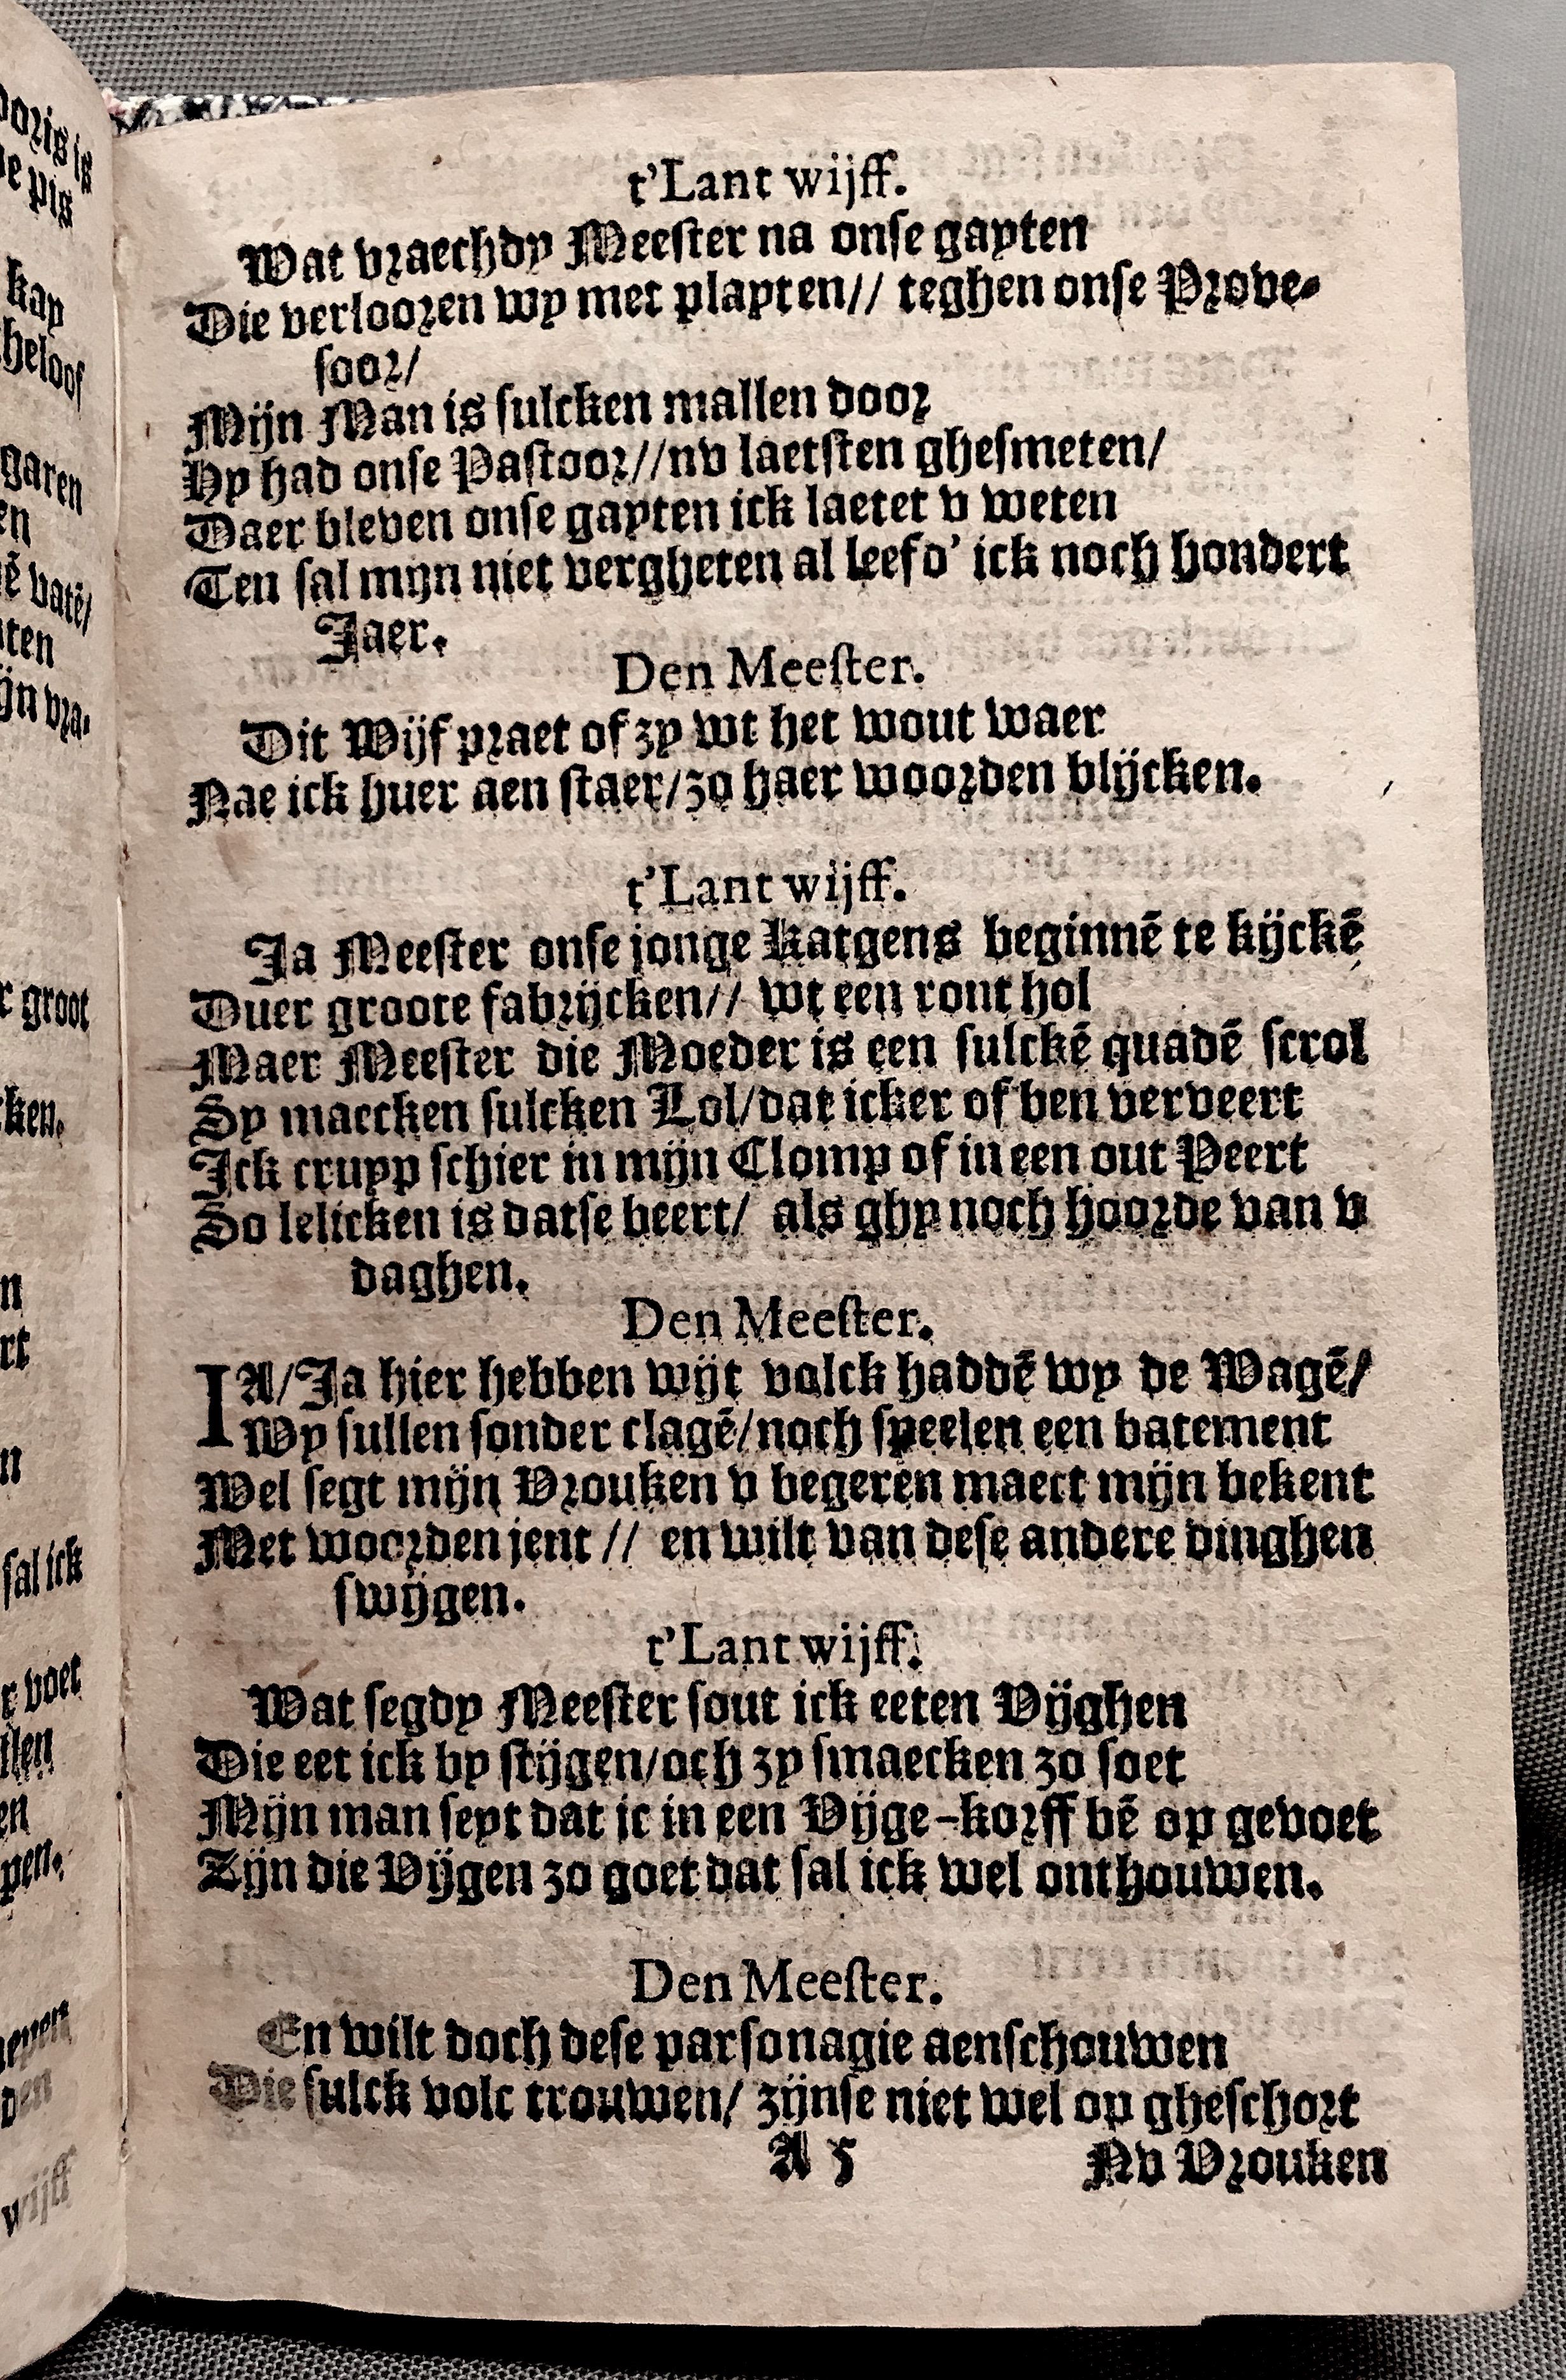 t'Lant wijff.
Wat vraechdy Meester na onse gayten
Die verlooren wy met playten// teghen onse Prove-
soor/
Mijn Man is sulcken mallen door
Hy had onse Pastoor//nv laetsten ghesmeten/
Daer bleven onse gayten ick laetet v weten
Ten sal mijn niet vergheten al leefd' ick noch hondert
Jaer.
Den Meester.
Dit Wijf praet of zy wt het wout waer
Nae ick huer aen staer/zo haer woorden blijcken.
t'Lant wijff.
Ja Meester onse jonge Katgens beginnē te kijckē
Duer groote fabrijcken// wt een ront hol
Maer Meester die Moeder is een sulckē quadē scrol
Sy maecken sulcken Lol/dat icker of ben verveert
Ick crupp schier in mijn Clomp of in een out Peert
So lelicken is datse beert/ als ghy noch hoorde van v
daghen.
Den Meester.
IA/Ja hier hebben wijt volck haddē wy de Wagē/
Wy sullen sonder clagē/noch speelen een batement
Wel segt mijn Vrouken v begeren maect mijn bekent
Met woorden jent // en wilt van dese andere dinghen
swijgen.
t'Lant wijff.
Wat segdy Meester sout ick eeten Vijghen
Die eet ick by stijgen/och zy smaecken zo soet
Mijn man seyt dat ic in een Vijge-korff bē op gevoet
Zijn die Vijgen zo goet dat sal ick wel onthouwen.
Den Meester.
En wilt doch dese parsonagie aenschouwen
Die sulck volc trouwen/ zijnse niet wel op gheschort
A 5 Nv Vrouken